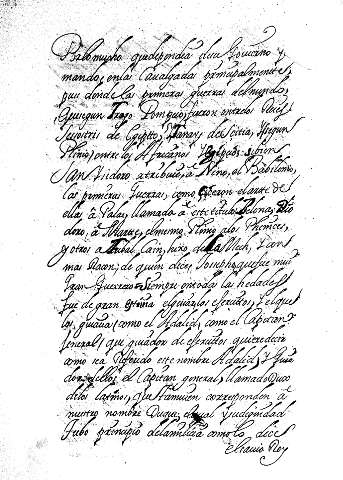 Por lo mucho que dependia de su Govierno y
mando, en la Cavalgada principalmente,
pues donde las primeras guerras del mundo,
que segun Trogo Pompeio, fueron entre los Reies
sesostris de Egipto, y Tanais de Scitia, segun
Plinio, entre los Africanos y Egipcios, si bien
San Isidoro atribuie, a Nino, el Babilonio,
las primeras Guerras, como fueron el arte de
ellas, a Palas, llamada a este efecto Belona, Dio
doro, a Marte, el mesmo Plinio a los Phenices,
y otros a Tubal Cain, hixo de Lamech, y con
mas Raçon, de quien dice, Josepho, que fue mui
Gran Guerrero. siempre en todas las hedades
fue de gran estima el guiar los exercitos, y el que
los guiava (como el Adalid, como el Capitan
General) que guiador de exercitos quiere decir
como sea Referido este nombre Adalid, y Guia
dor de ellos, el Capitan general, llamado Dux
de los latinos, que tamvien corresponden a
nuestro nombre Duque, el qual y su dignidad
tubo principio de la milicia como lo dice
el savio Rey